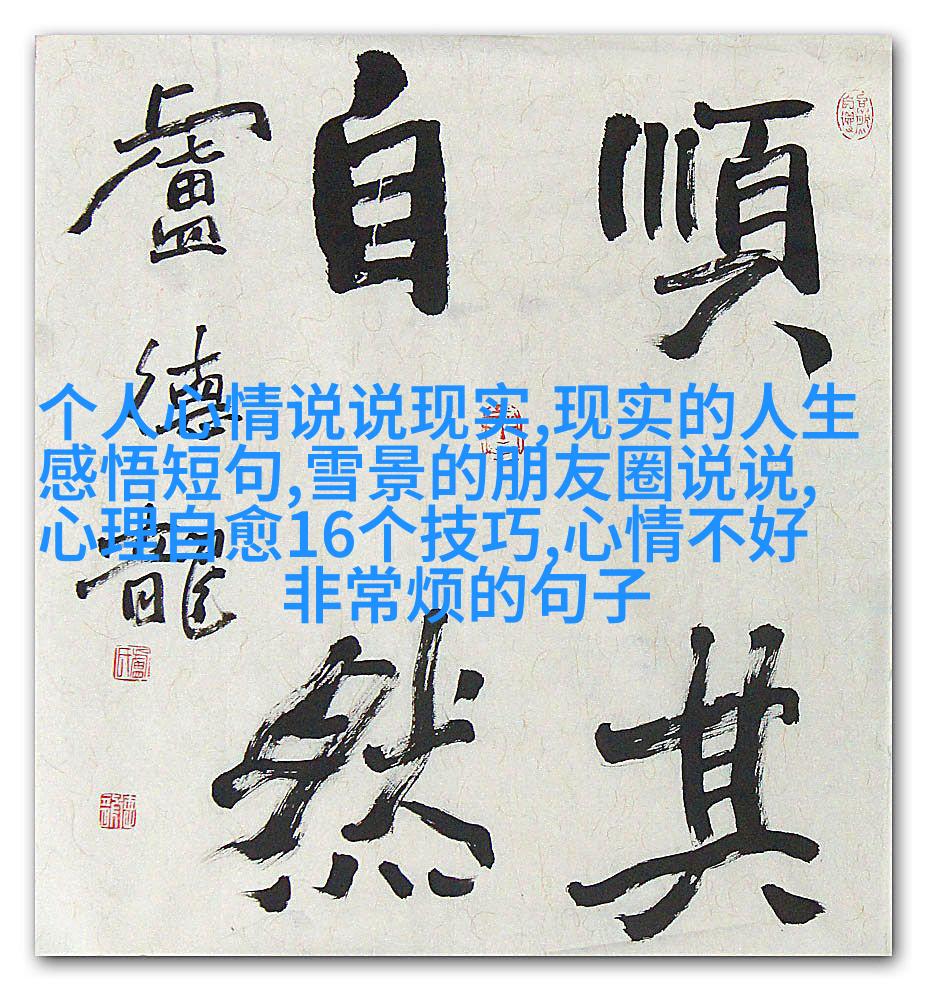 順其
自然
盧德龍
个人心情说说现实,现实的人生
感悟短句,雪景的朋友圈说说,
心理自愈16个技巧,心情不好
非常烦的句子